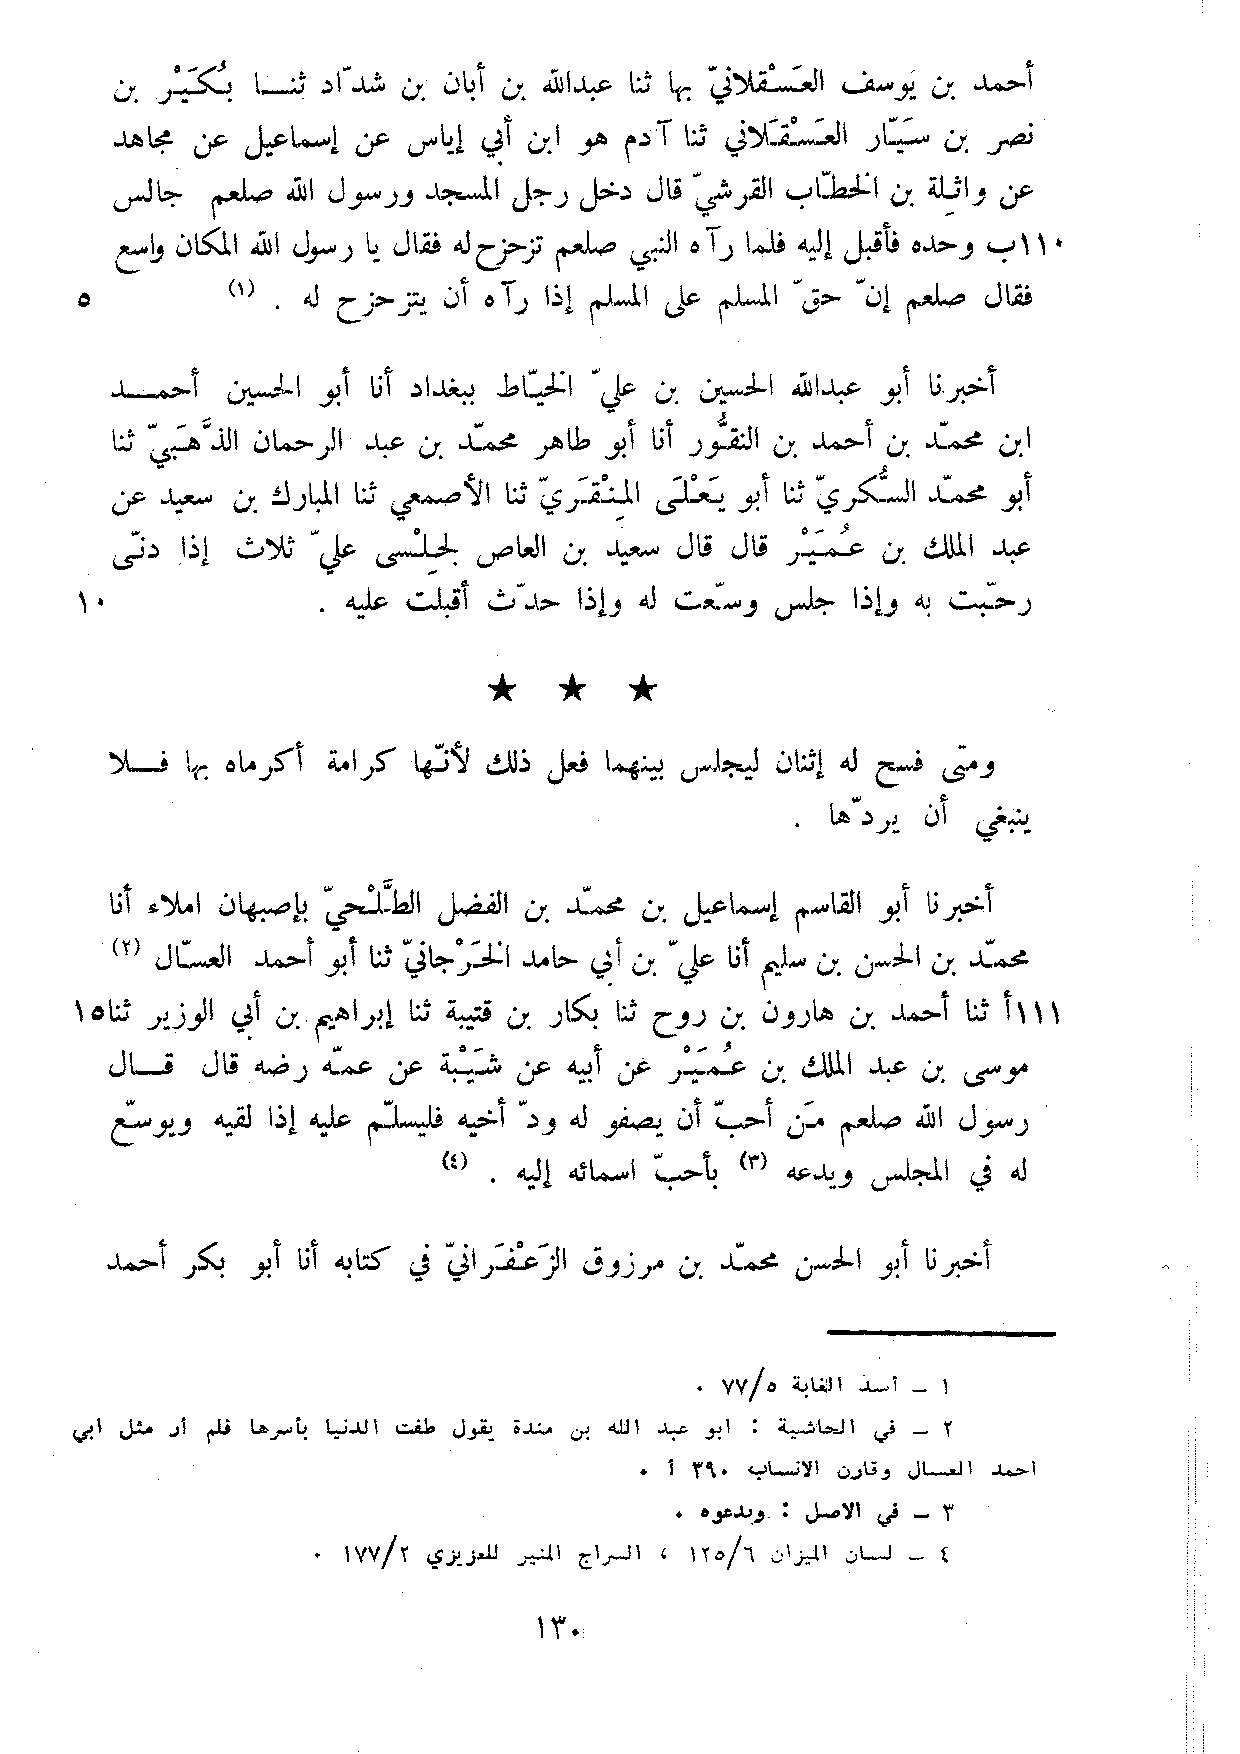 أحمد بن يوسف العَسْقلانيّ بها ثنا عبدالله بن أبان بن شدّاد ثنا بُكَيْر بن
نصر بن سَيّار العَسْقَلاني ثنا آدم هو ابن أبي إياس عن إسماعيل عن مجاهد
عن واثِلة بن الخطّاب القرشيّ قال دخل رجل المسجد ورسول الله صلعم جالس
١١٠ب وحده فأقبل إليه فلما رآه النبي صلعم تزحزح له فقال يا رسول الله المكان واسع
فقال صلعم إنّ حقّ المسلم على المسلم إذا رآه أن يتزحزح له . (١) ٥
أخبرنا أبو عبدالله الحسين بن عليّ الخيّاط ببغداد أنا أبو الحسين أحمد
ابن محمّد بن أحمد بن النقُّور أنا أبو طاهر محمّد بن عبد الرحمان الذَّهَبيّ ثنا
أبو محمّد السُّكريّ ثنا أبو يَعْلَى المِنْقَريّ ثنا الأصمعي ثنا المبارك بن سعيد عن
عبد الملك بن عُمَيْر قال قال سعيد بن العاص لجِلْسى عليّ ثلاث إذا دنّى
رحّبت به وإذا جلس وسّعت له وإذا حدّث أقبلت عليه . ١٠
★ ★ ★
ومتى فسح له إثنان ليجلس بينهما فعل ذلك لأنّها كرامة أكرماه بها فلا
ينبغي أن يردّها .
أخبرنا أبو القاسم إسماعيل بن محمّد بن الفضل الطَّلْحيّ بإصبهان املاء أنا
محمّد بن الحسن بن سليم أنا عليّ بن أبي حامد الخَرْجانيّ ثنا أبو أحمد العسّال (٢)
١١١أ ثنا أحمد بن هارون بن روح ثنا بكار بن قتيبة ثنا إبراهيم بن أبي الوزير ثنا ١٥
موسى بن عبد الملك بن عُمَيْر عن أبيه عن شَيْبة عن عمّه رضه قال قال
رسول الله صلعم مَن أحبّ أن يصفو له ودّ أخيه فليسلّم عليه إذا لقيه ويوسّع
له في المجلس ويدعه (٣) بأحبّ اسمائه إليه . (٤)
أخبرنا أبو الحسن محمّد بن مرزوق الزَعْفَرانيّ في كتابه أنا أبو بكر أحمد
١ – أسد الغابة ٧٧/٥ .
٢ – في الحاشية : ابو عبد الله بن مندة يقول طفت الدنيا بأسرها فلم أر مثل ابي
احمد العسال وقارن الانساب ٣٩٠ أ .
٣ – في الاصل : ويدعوه .
٤ – لسان الميزان ١٢٥/٦ ، السراج المنير للعزيزي ١٧٧/٢ .
١٣٠